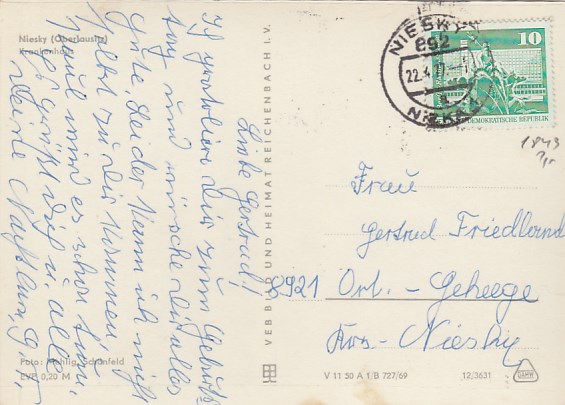 Niesky (Oberlausitz)
Krankenhaus
Liebe Gertrud!
Ich gratuliere Dir zum Geburts
tag und wünsche Dir alles
Gute. Leider kann ich nicht
selbst zu Dir kommen.
es schon tun.
es grüßt Dich u. alle
Deine
Foto: Schönfeld
EVP 0,20 M
VEB BILD UND HEIMAT REICHENBACH I. V.
V 11 50 A 1/B 727/69
12/3631
NIESKY
892
22.4.77
NIESKY
10
DEMOKRATISCHE REPUBLIK
1843
Frau
Gertrud Friedland
8921 Ort.- Geheege
Krs- Niesky